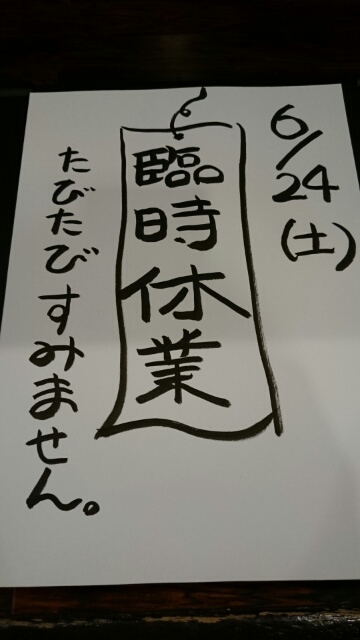 6/24(土)
臨時休業
たびたびすみません。